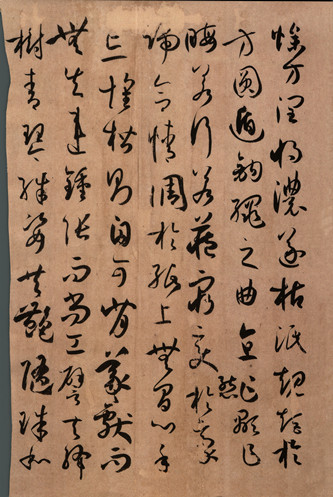 燥方潤將濃遂枯泯規矩於
方圓遁鉤繩之曲直乍顯乍
晦若行若藏窮變態於豪
端合情調於紙上無間心手
忘懷楷則自可背羲獻而
無失違鍾張而尚工譬夫絳
樹青琴殊姿共艷隨珠和